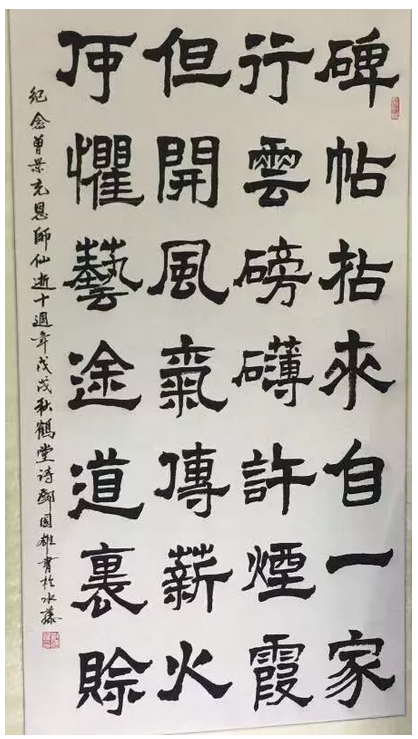 碑帖拈來自一家
行雲磅礴許煙霞
但開風氣傳薪火
何懼藝途道裏賒
紀念曾景充恩師仙逝十週年戊戌秋鶴堂诗鄧国雄書於水藤